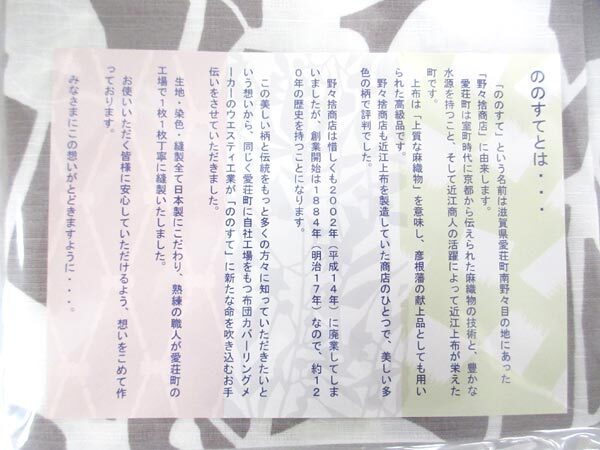 ののすてとは・・・
「ののすて」という名前は滋賀県愛荘町南野々目の地にあった
「野々捨商店」に由来します。
愛荘町は室町時代に京都から伝えられた麻織物の技術と、豊かな
水源を持つこと、そして近江商人の活躍によって近江上布が栄えた
町です。
上布は「上質な麻織物」を意味し、彦根藩の献上品としても用い
られた高級品です。
野々捨商店も近江上布を製造していた商店のひとつで、美しい多
色の柄で評判でした。
野々捨商店は惜しくも2002年（平成14年）に廃業してしま
いましたが、創業開始は1884年（明治17年）なので、約12
0年の歴史を持つことになります。
この美しい柄と伝統をもっと多くの方々に知っていただきたいと
いう想いから、同じく愛荘町に自社工場をもつ布団カバーリングメ
ーカーのウエスティ工業が「ののすて」に新たな命を吹き込むお手
伝いをさせていただきました。
生地・染色・縫製全て日本製にこだわり、熟練の職人が愛荘町の
工場で1枚1枚丁寧に縫製いたしました。
お使いいただく皆様に安心していただけるよう、想いをこめて作
っております。
みなさまにこの想いがとどきますように・・・。